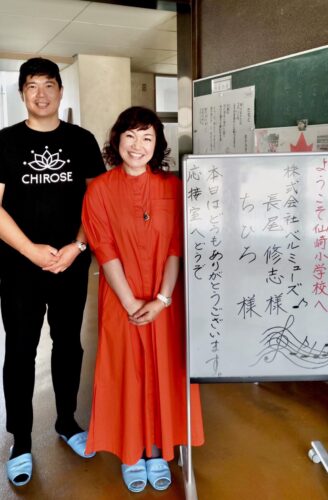 CHIROSE
ようこそ仙崎小学校へ
株式会社ベルミューズ♪
長尾修志様
ちひろ 様
本日はどうもありがとうございます。
応接室へどうぞ